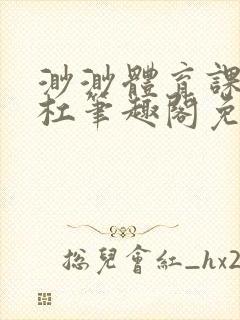 渺渺體育課
杜筆趣閣免
總兒會紅_hx2